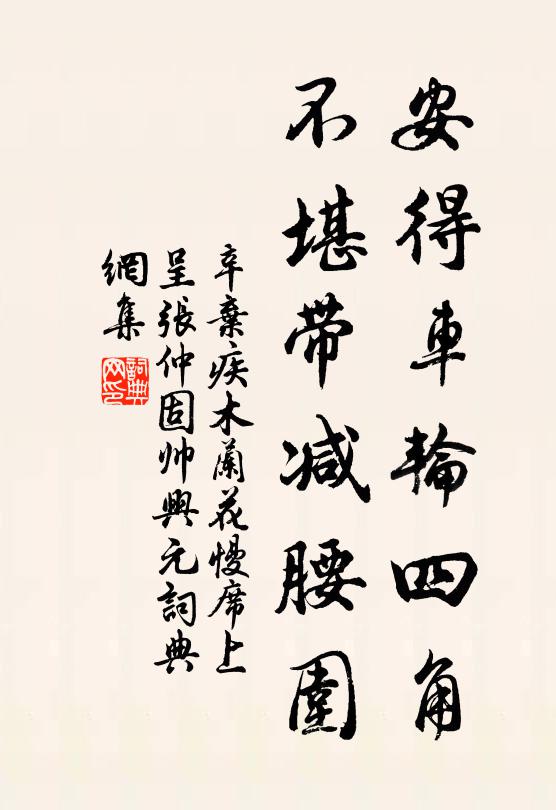 安得車輪四角
不堪带减腰圍
辛棄疾木蘭花慢席上
呈張仲固帅興元詞典
網集
詞典
网印